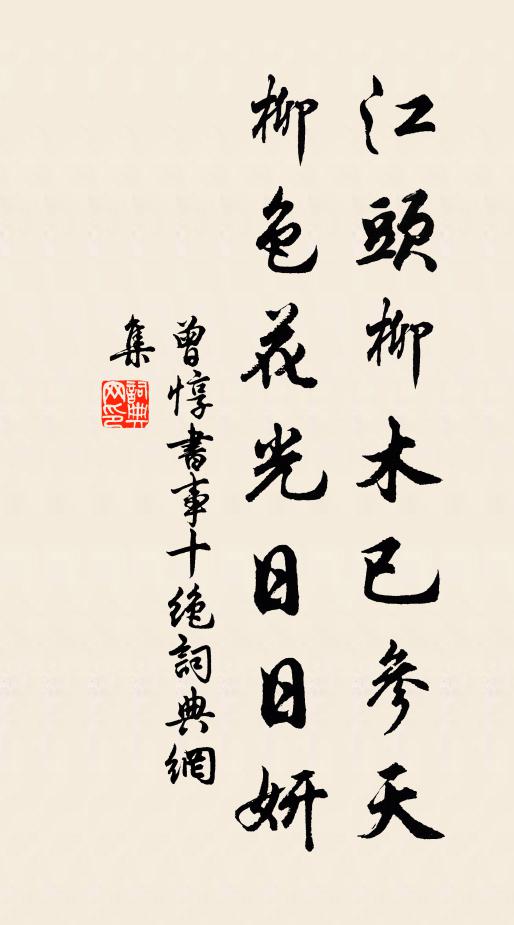 江頭柳木已參天
柳色花光日日妍
曾惇書事十絶詞典網
集
詞典
网印